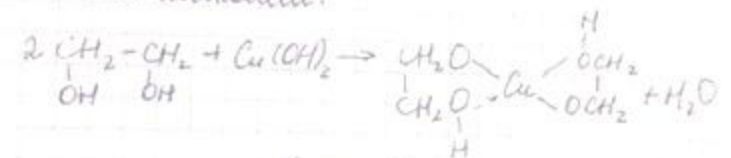 2 CH₂-CH₂ + Cu(OH)₂ → CH₂O Cu OCH₂ + H₂O
OH OH
H
CH₂O OCH₂
H